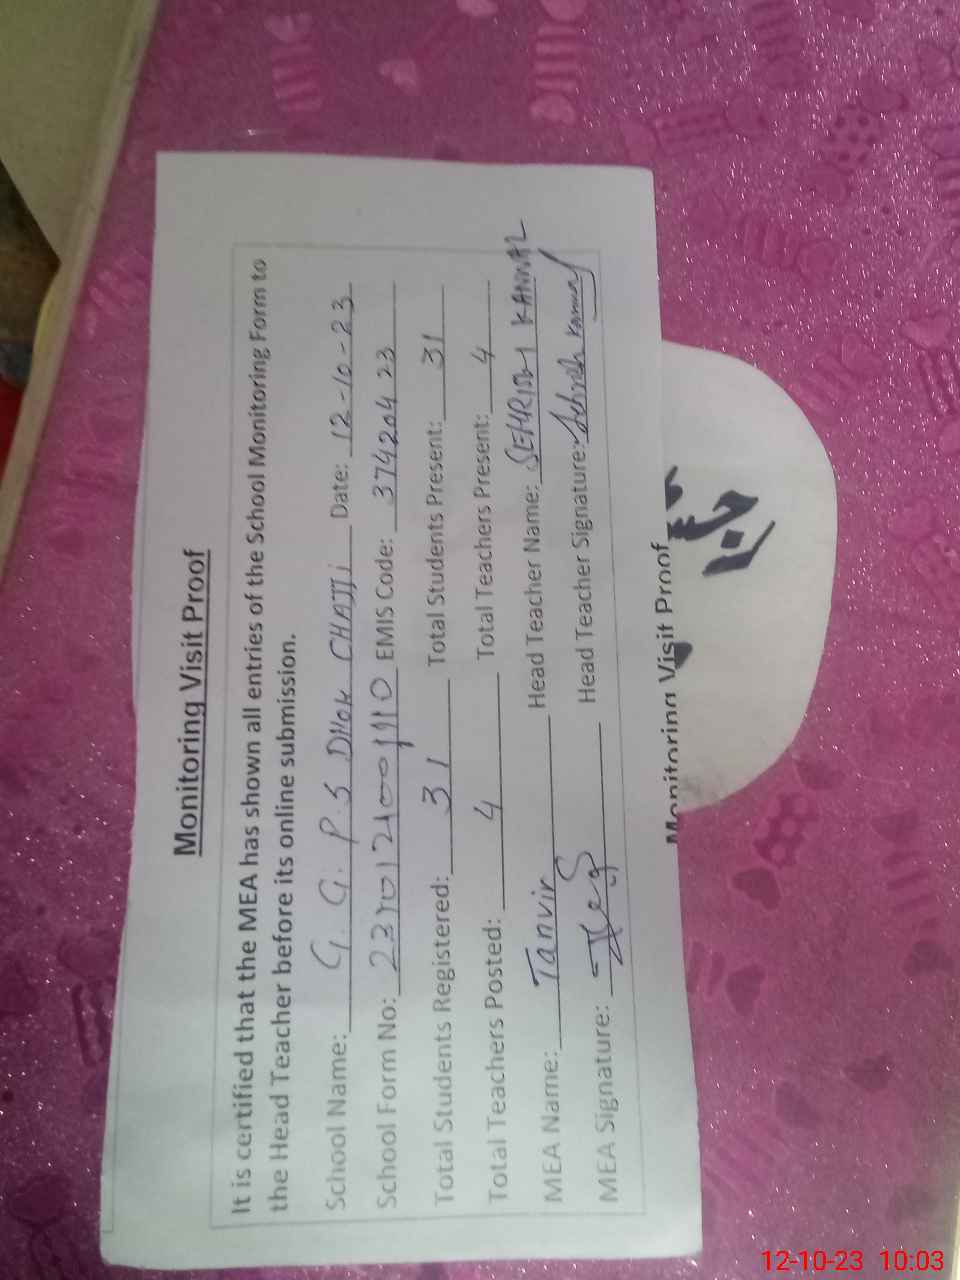 Monitoring Visit Proof
It is certified that the MEA has shown all entries of the School Monitoring Form to
the Head Teacher before its online submission.
School Name: G. G. P. S DHOK CHAJJi Date: 12-10-23
School Form No: EMIS Code: 37420423
Total Students Registered: 31 Total Students Present: 31
Total Teachers Posted: 4 Total Teachers Present: 4
MEA Name: Tanvir Head Teacher Name: SEHRISH KANWAL
MEA Signature: Head Teacher Signature: Sehrish Kanwal
Monitoring Visit Proof
12-10-23 10:03